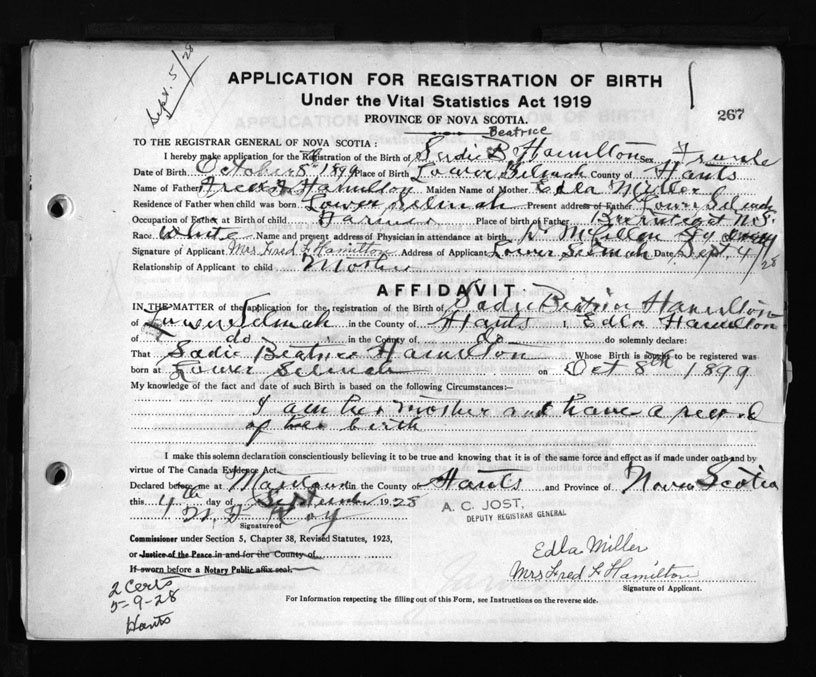 Sept. 5/28
APPLICATION FOR REGISTRATION OF BIRTH
Under the Vital Statistics Act 1919
PROVINCE OF NOVA SCOTIA.
267
Beatrice
TO THE REGISTRAR GENERAL OF NOVA SCOTIA:
I hereby make application for the Registration of the Birth of Sadie B Hamilton Sex Female
Date of Birth October 8th 1899 Place of Birth Lower Selmah County of Hants
Name of Father Fred Hamilton Maiden Name of Mother Edla Miller
Residence of Father when child was born Lower Selmah Present address of Father Lower Selmah
Occupation of Father at Birth of child Farmer Place of birth of Father N.S.
Race White Name and present address of Physician in attendance at birth Dr
Signature of Applicant Mrs Fred F Hamilton Address of Applicant Lower Selmah Date Sept 4/28
Relationship of Applicant to child Mother
AFFIDAVIT
IN THE MATTER of the application for the registration of the Birth of Sadie Beatrice Hamilton
of Lower Selmah in the County of Hants I, Edla Hamilton
of do in the County of do do solemnly declare:
That Sadie Beatrice Hamilton Whose Birth is sought to be registered was
born at Lower Selmah on Oct 8th 1899
My knowledge of the fact and date of such Birth is based on the following Circumstances:—
I am her mother and have a record
of her birth
I make this solemn declaration conscientiously believing it to be true and knowing that it is of the same force and effect as if made under oath and by
virtue of The Canada Evidence Act.
Declared before me at Maitland in the County of Hants and Province of Nova Scotia
this 4th day of September 1928
A. C. JOST,
DEPUTY REGISTRAR GENERAL
Roy
Signature of
Commissioner under Section 5, Chapter 38, Revised Statutes, 1923,
or Justice of the Peace in and for the County of
If sworn before a Notary Public affix seal.
Edla Miller
Mrs Fred F Hamilton
Signature of Applicant.
2 Certs
5-9-28
Hants
For Information respecting the filling out of this Form, see Instructions on the reverse side.